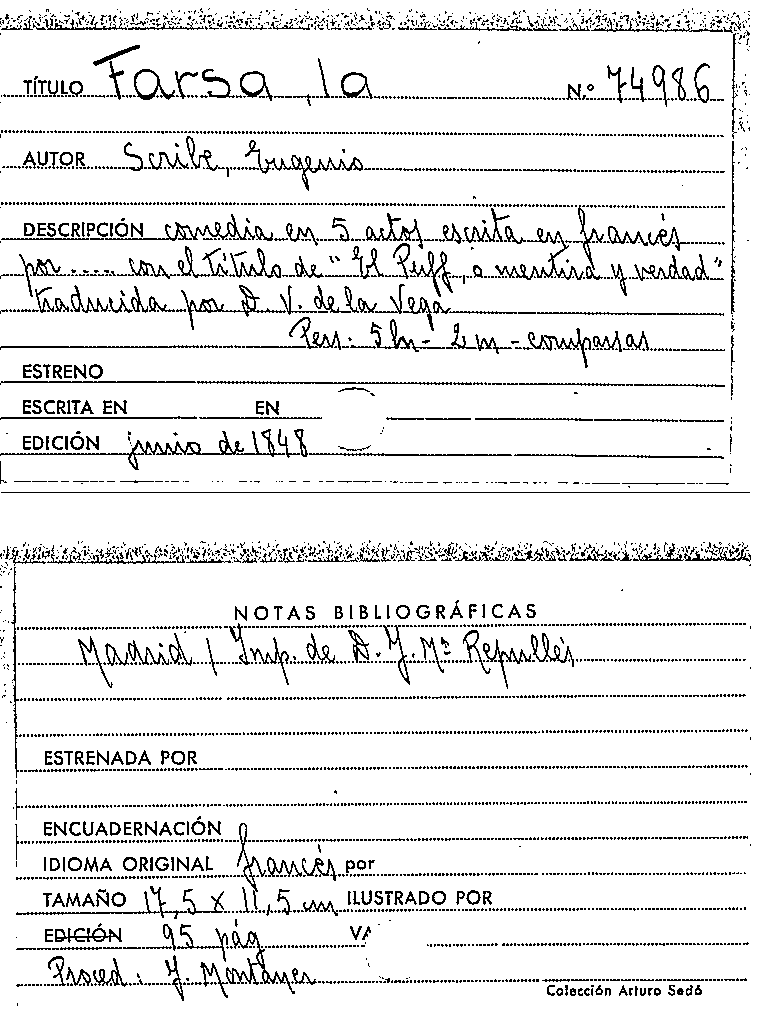 TÍTULO Farsa, la N.º 74986
AUTOR Scribe, Eugenio
DESCRIPCIÓN comedia en 5 actos escrita en francés
por ..... con el título de "El Puff, o mentira y verdad"
traducida por D. V. de la Vega
Pers. 5 h - 2 m - comparsas
ESTRENO
ESCRITA EN EN
EDICIÓN junio de 1848
NOTAS BIBLIOGRÁFICAS
Madrid / Imp. de D. J. Mª Repullés
ESTRENADA POR
ENCUADERNACIÓN
IDIOMA ORIGINAL francés por
TAMAÑO 17,5 x 11,5 cm ILUSTRADO POR
EDICIÓN 95 pág VA
Proced. J. Montaner
Colección Arturo Sedó